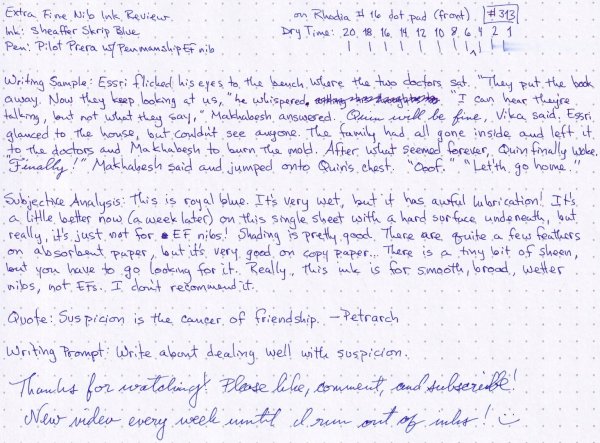 Extra Fine Nib Ink Review. on Rhodia #16 dot pad (front). #313
Ink: Sheaffer Skrip Blue Dry Time: 20 18 16 14 12 10 8 6 4 2 1
Pen: Pilot Prera w/Penmanship EF nib
Writing Sample: Essri flicked his eyes to the bench where the two doctors sat. "They put the book
away. Now they keep looking at us," he whispered. "I can hear they're
talking, but not what they say," Makhabesh answered. Quin will be fine, Vika said. Essri
glanced to the house, but couldn't see anyone. The family had all gone inside and left it
to the doctors and Makhabesh to burn the mold. After what seemed forever, Quin finally woke.
"Finally!" Makhabesh said and jumped onto Quin's chest. "Ooof." "Let'th go home."
Subjective Analysis: This is royal blue. It's very wet, but it has awful lubrication! It's
a little better now (a week later) on this single sheet with a hard surface underneath, but
really, it's just not for EF nibs! Shading is pretty good. There are quite a few feathers
on absorbent paper, but it's very good on copy paper... There is a tiny bit of sheen,
but you have to go looking for it. Really, this ink is for smooth, broad, wetter
nibs, not EFs. I don't recommend it.
Quote: Suspicion is the cancer of friendship. —Petrarch
Writing Prompt: Write about dealing well with suspicion.
Thanks for watching! Please like, comment, and subscribe!
New video every week until I run out of inks!